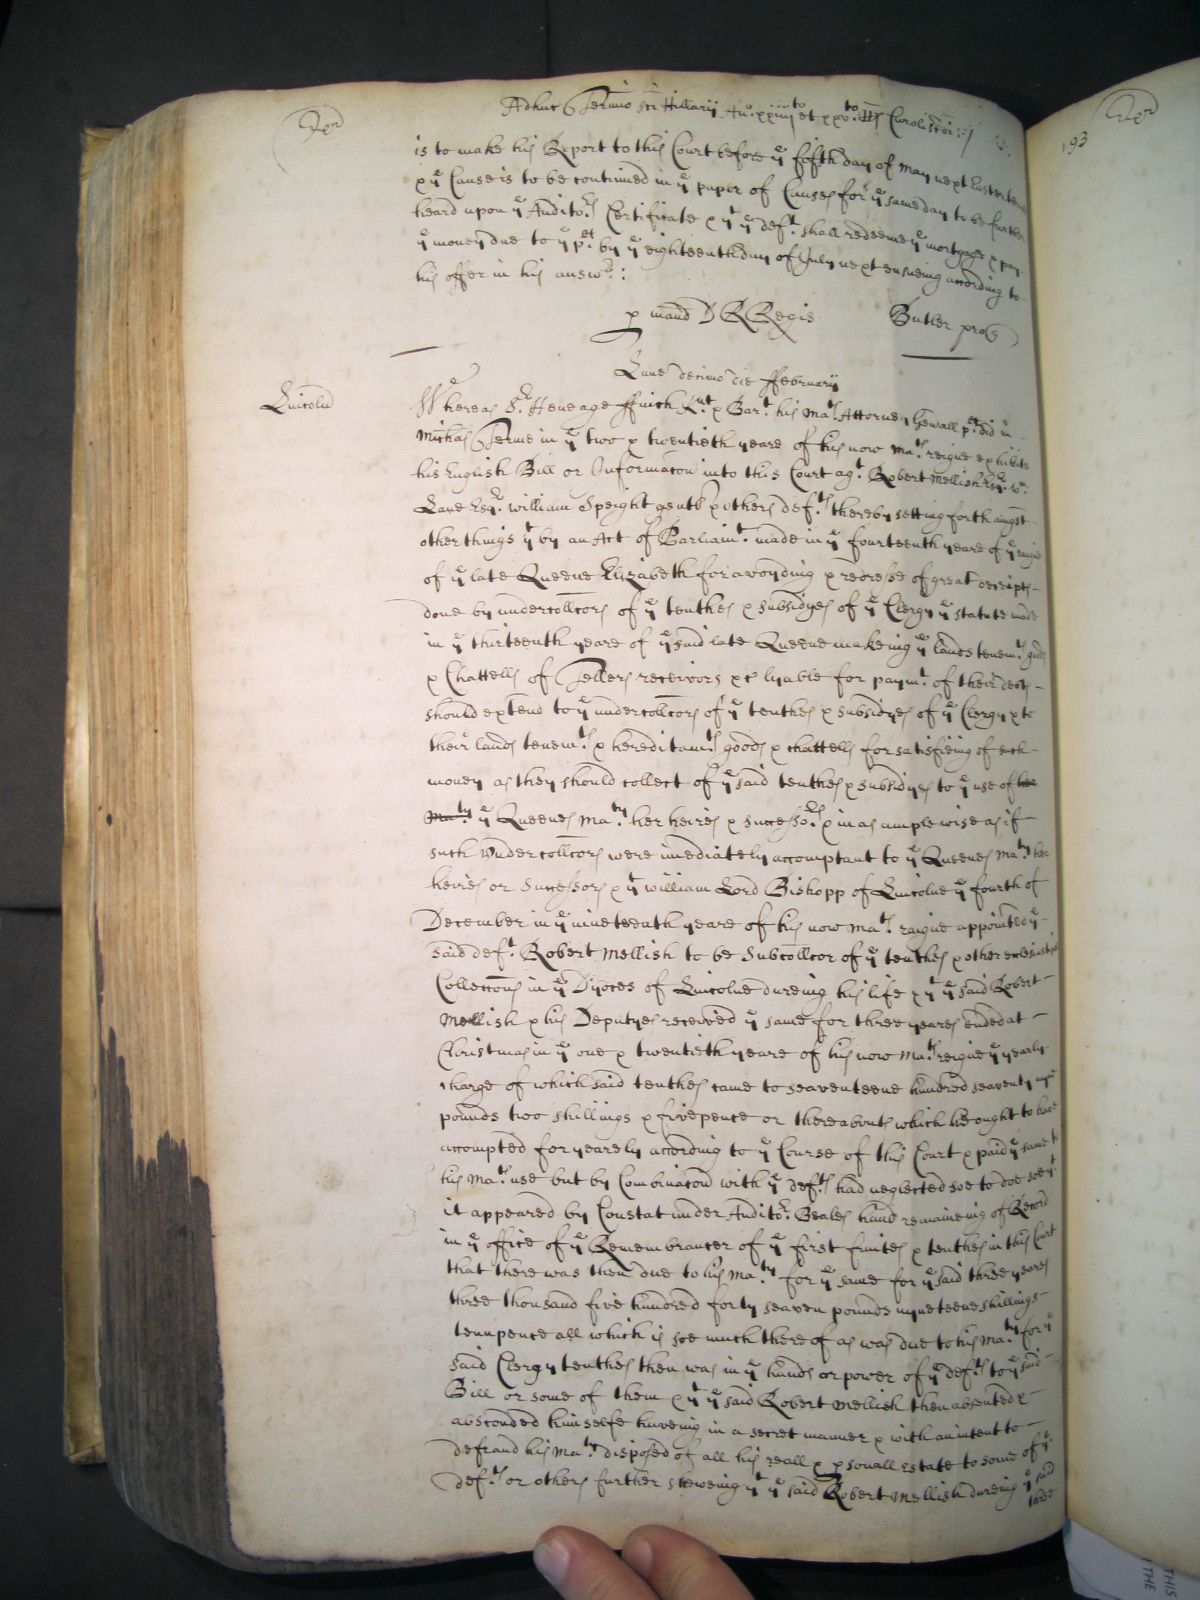 Adhuc Termino Sci Hillarij Ano xxiiijto et xxvto RRs Caroli scdi
193
is to make his Report to this Court before ye fifth day of May next Easter terme
& ye Cause is to be continued in ye paper of Causes for ye same day to be further
heard upon ye Auditors Certificate & yt ye deft shall redeeme ye mortgage & pay
ye money due to ye plt by ye eighteenth day of July next ensueing according to
his offer in his answr:
p mand D R Regis Butler pro
Lune decimo die ffebruarij
Lincoln
Whereas Sr Heneage ffinch Knt & Bart his Mats Attorney Genall plt did in
Michas Terme in ye two & twentieth yeare of his now Mats reigne exhibite
his English Bill or Informacon into this Court agt Robert Mellish Esqr Wm
Lane Esqr William Speight gent & others defts thereby setting forth amgst
other things yt by an Act of Parliamt made in ye fourteenth yeare of ye raigne
of ye late Queene Elizabeth for avoyding & redresse of great deceipts
done by undercollcors of ye tenthes & subsidyes of ye Clergy ye statute made
in ye thirteenth yeare of ye said late Queene makeing ye lands tenemts goods
& Chattells of Tellers receivors &c lyable for paymt of their debts
should extend to ye undercollcors of ye tenthes & subsidyes of ye Clergy & to
their lands tenemts & hereditamts goods & chattells for satisfieing of such
money as they should collect of ye said tenthes & subsidyes to ye use of her
Maty ye Queenes Maty her heires & successors & in as ample wise as if
such Undercollcors were imediately accomptant to ye Queenes Maty her
heires or Successors & yt William Lord Bishopp of Lincolne ye fourth of
December in ye nineteenth yeare of his now Mats raigne appointed ye
said deft Robert Mellish to be Subcollcor of ye tenthes & other ecclesiasticall
Colleccons in ye Dyoces of Lincolne dureing his life & yt ye said Robert
Mellish & his Deputyes received ye same for three yeares ended at
Christmas in ye one & twentieth yeare of his now Mats reigne ye yearly
charge of which said tenthes came to seaventeene hundred seaventy nyne
pounds two shillings & fivepence or thereabouts which he ought to have
accompted for yearely according to ye Course of this Court & paid ye same to
his Mats use but by Combinacon with ye defts had neglected soe to doe soe yt
it appeared by Constat under Auditor Beales hand remaineing of Record
in ye office of ye Remembrancer of ye first fruites & tenthes in this Court
that there was then due to his Maty for ye same for ye said three yeares
three thousand five hundred forty seaven pounds nyneteene shillings
tennpence all which is soe much thereof as was due to his Maty for ye
said Clergy tenthes then was in ye hands or power of ye defts to ye said
Bill or some of them & yt ye said Robert Mellish then absented &
absconded himselfe haveing in a secret manner & with an intent to
defraud his Maty disposed of all his reall & psonall Estate to some of ye
defts or others further shewing yt ye said Robert Mellish dureing ye said
three
THIS
THE